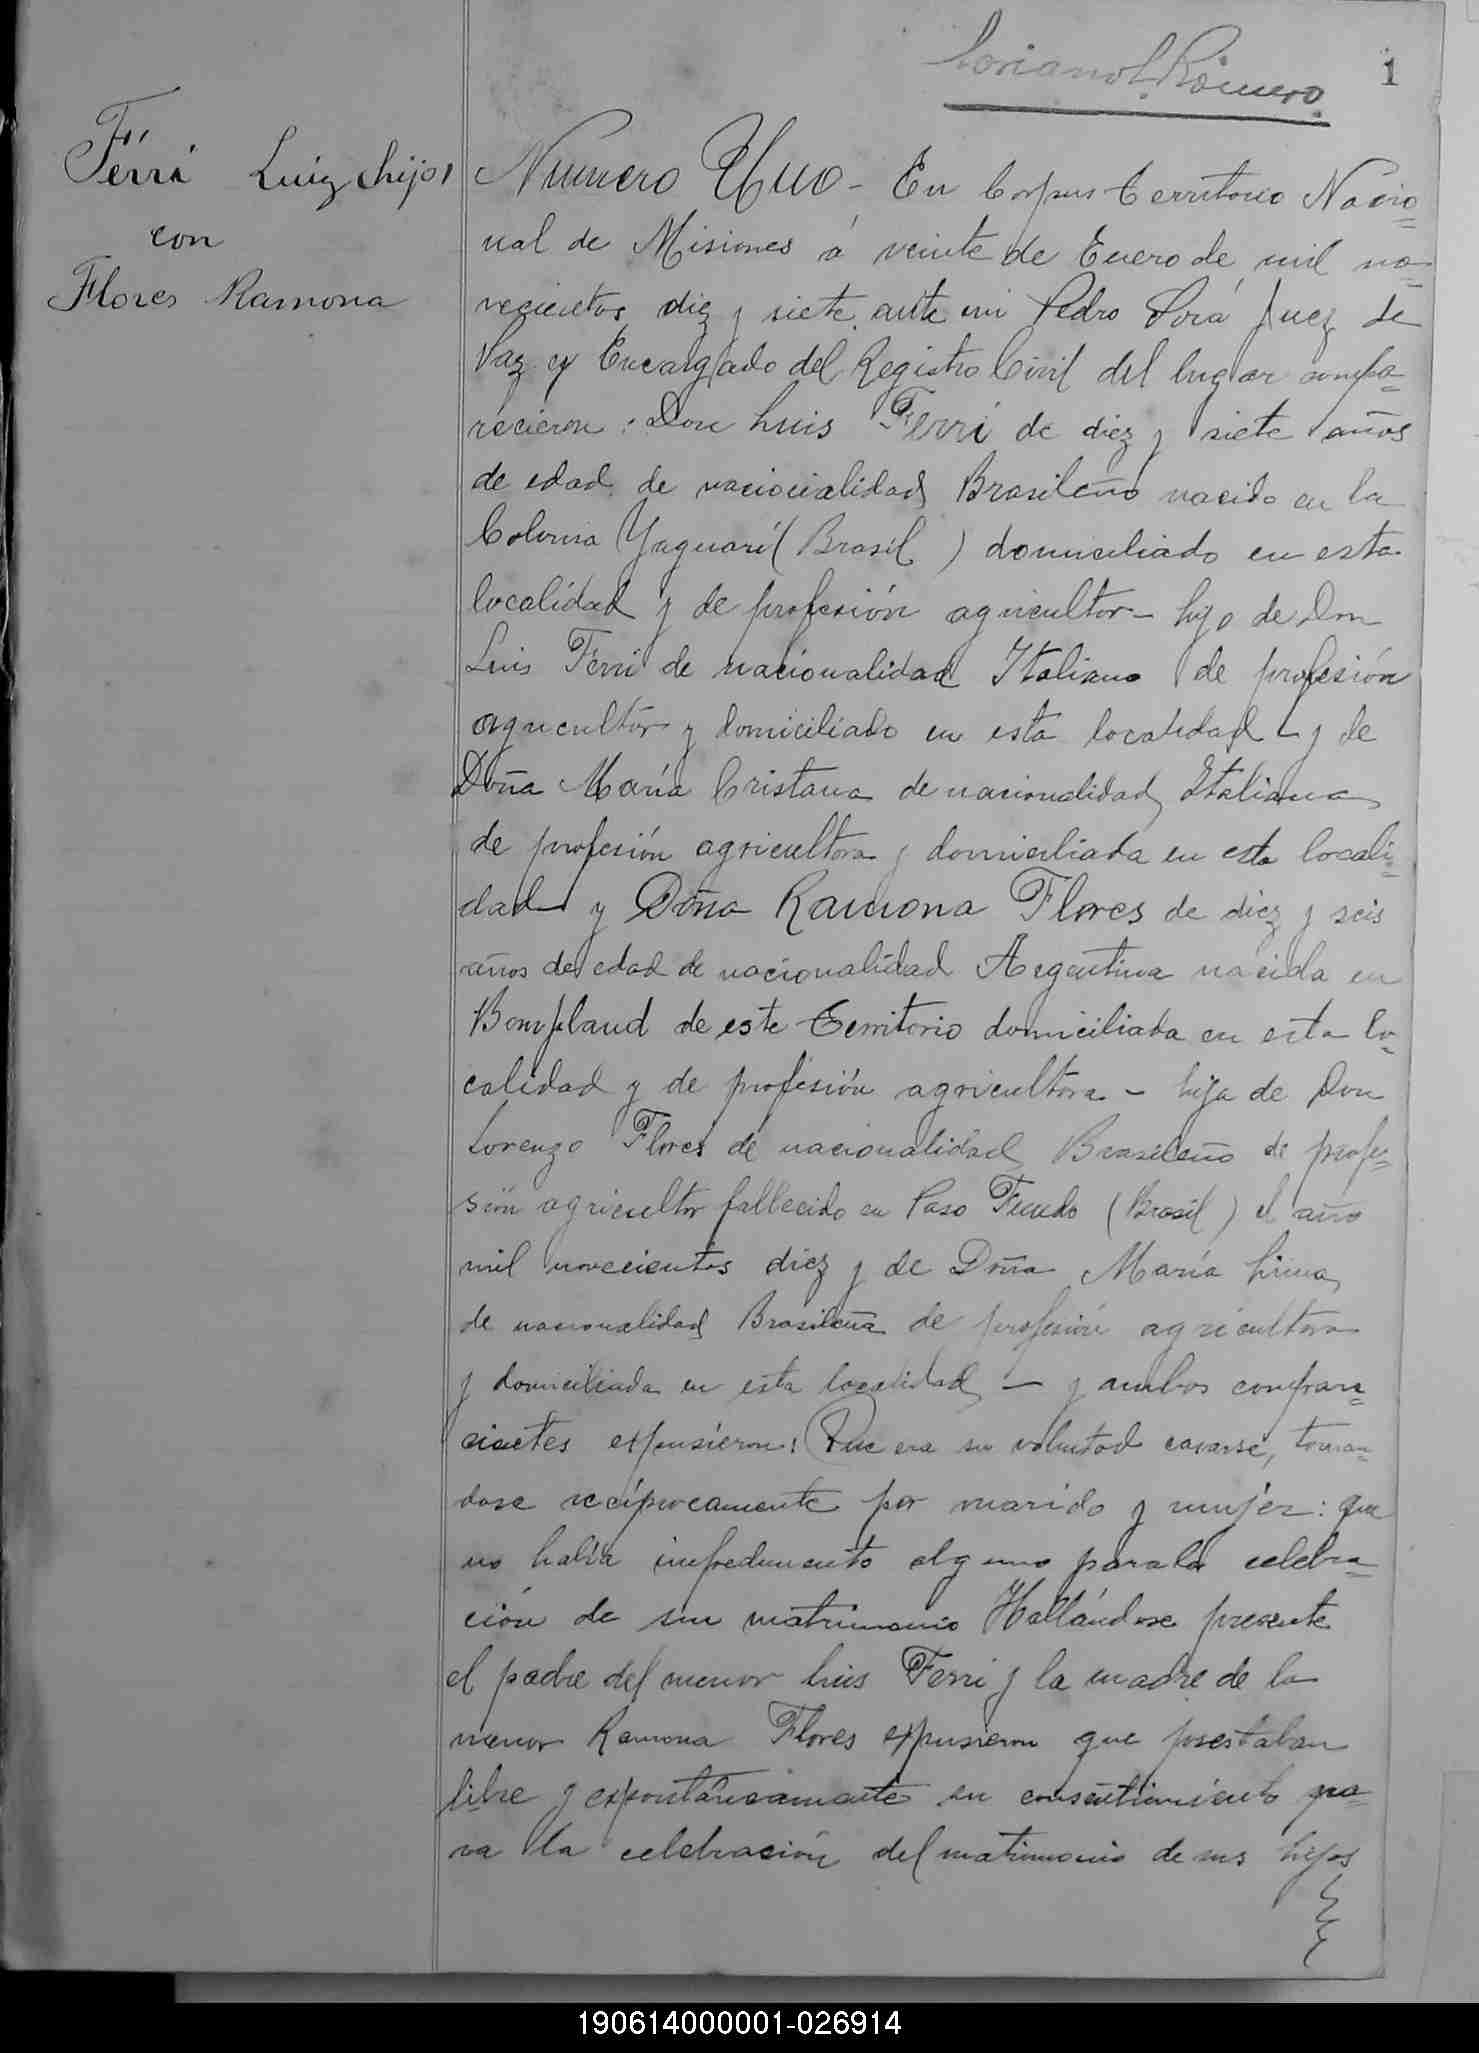 Romero
1
Ferri Luiz (hijo)
con
Flores Ramona
Numero Uno - En Corpus Territorio Nacio=
nal de Misiones á veinte de Enero de mil no=
vecientos diez y siete ante mi Pedro Juez de
Paz y Encargado del Registro Civil del lugar compa=
recieron: Don Luis Ferri de diez y siete años
de edad de nacionalidad Brasileño nacido en la
Colonia Yaguari (Brasil) domiciliado en esta
localidad y de profesión agricultor - hijo de Don
Luis Ferri de nacionalidad Italiano de profesión
agricultor y domiciliado en esta localidad - y de
Doña María Cristana de nacionalidad Italiana
de profesión agricultora y domiciliada en esta locali=
dad y Doña Ramona Flores de diez y seis
años de edad de nacionalidad Argentina nacida en
Bompland de este Territorio domiciliada en esta lo=
calidad y de profesión agricultora - hija de Don
Lorenzo Flores de nacionalidad Brasileño de profe=
sión agricultor fallecido en Paso Fundo (Brasil) el año
mil novecientos diez y de Doña María Lima
de nacionalidad Brasileña de profesión agricultora
y domiciliada en esta localidad - y ambos
expusieron: Que era su voluntad casarse, toman=
dose recíprocamente por marido y mujer: que
no había impedimento alguno para la celebra=
ción de su matrimonio Hallándose presente
el padre del menor Luis Ferri y la madre de la
menor Ramona Flores expusieron que prestaban
libre y espontáneamente su consentimiento pa=
ra la celebración del matrimonio de sus hijos
190614000001-026914